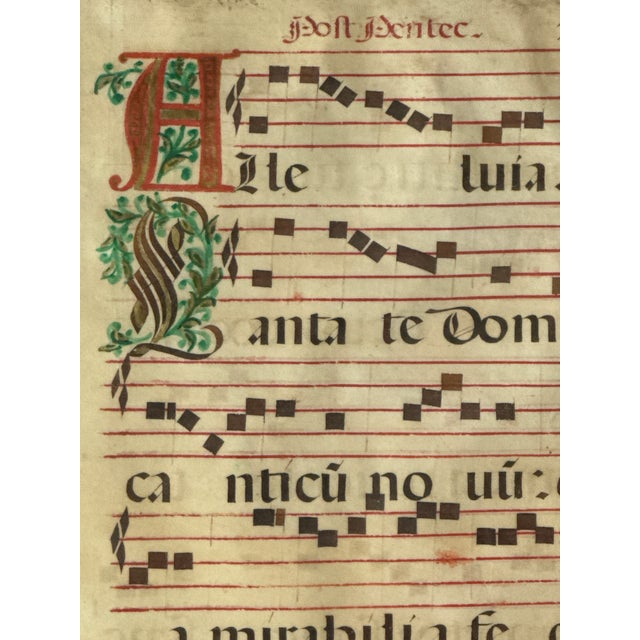 Post Pentec.
Alle luia.
Canta te Dom
ca nticũ no uũ:
a mirabilia fe